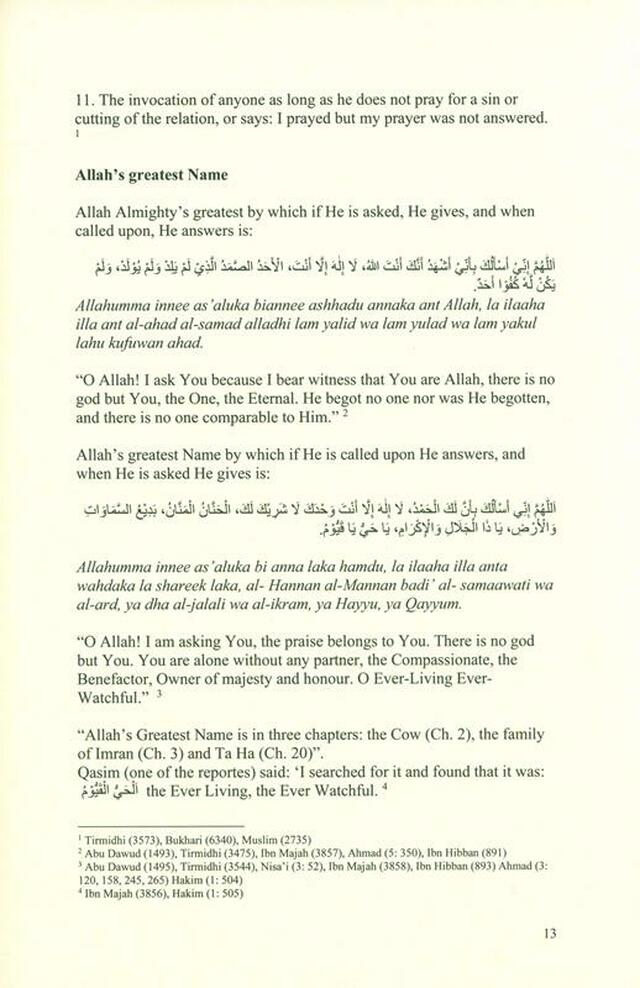 11. The invocation of anyone as long as he does not pray for a sin or
cutting of the relation, or says: I prayed but my prayer was not answered.
1
Allah’s greatest Name
Allah Almighty’s greatest by which if He is asked, He gives, and when
called upon, He answers is:
اَللَّهُمَّ إِنِّيْ أَسْأَلُكَ بِأَنِّيْ أَشْهَدُ أَنَّكَ أَنْتَ اللهُ، لَا إِلٰهَ إِلَّا أَنْتَ، الْأَحَدُ الصَّمَدُ الَّذِيْ لَمْ يَلِدْ وَلَمْ يُوْلَدْ، وَلَمْ
يَكُنْ لَهُ كُفُوًا أَحَدٌ.
Allahumma innee as’aluka biannee ashhadu annaka ant Allah, la ilaaha
illa ant al-ahad al-samad alladhi lam yalid wa lam yulad wa lam yakul
lahu kufuwan ahad.
“O Allah! I ask You because I bear witness that You are Allah, there is no
god but You, the One, the Eternal. He begot no one nor was He begotten,
and there is no one comparable to Him.” 2
Allah’s greatest Name by which if He is called upon He answers, and
when He is asked He gives is:
اَللَّهُمَّ إِنِّي أَسْأَلُكَ بِأَنَّ لَكَ الْحَمْدُ، لَا إِلٰهَ إِلَّا أَنْتَ وَحْدَكَ لَا شَرِيْكَ لَكَ، الْحَنَّانُ الْمَنَّانُ، بَدِيْعُ السَّمَاوَاتِ
وَالْأَرْضِ، يَا ذَا الْجَلَالِ وَالْإِكْرَامِ، يَا حَيُّ يَا قَيُّوْمُ.
Allahumma innee as’aluka bi anna laka hamdu, la ilaaha illa anta
wahdaka la shareek laka, al- Hannan al-Mannan badi’ al- samaawati wa
al-ard, ya dha al-jalali wa al-ikram, ya Hayyu, ya Qayyum.
“O Allah! I am asking You, the praise belongs to You. There is no god
but You. You are alone without any partner, the Compassionate, the
Benefactor, Owner of majesty and honour. O Ever-Living Ever-
Watchful.” 3
“Allah’s Greatest Name is in three chapters: the Cow (Ch. 2), the family
of Imran (Ch. 3) and Ta Ha (Ch. 20)”.
Qasim (one of the reportes) said: ‘I searched for it and found that it was:
اَلْحَيُّ الْقَيُّوْمُ the Ever Living, the Ever Watchful. 4
1 Tirmidhi (3573), Bukhari (6340), Muslim (2735)
2 Abu Dawud (1493), Tirmidhi (3475), Ibn Majah (3857), Ahmad (5: 350), Ibn Hibban (891)
3 Abu Dawud (1495), Tirmidhi (3544), Nisa’i (3: 52), Ibn Majah (3858), Ibn Hibban (893) Ahmad (3:
120, 158, 245, 265) Hakim (1: 504)
4 Ibn Majah (3856), Hakim (1: 505)
13